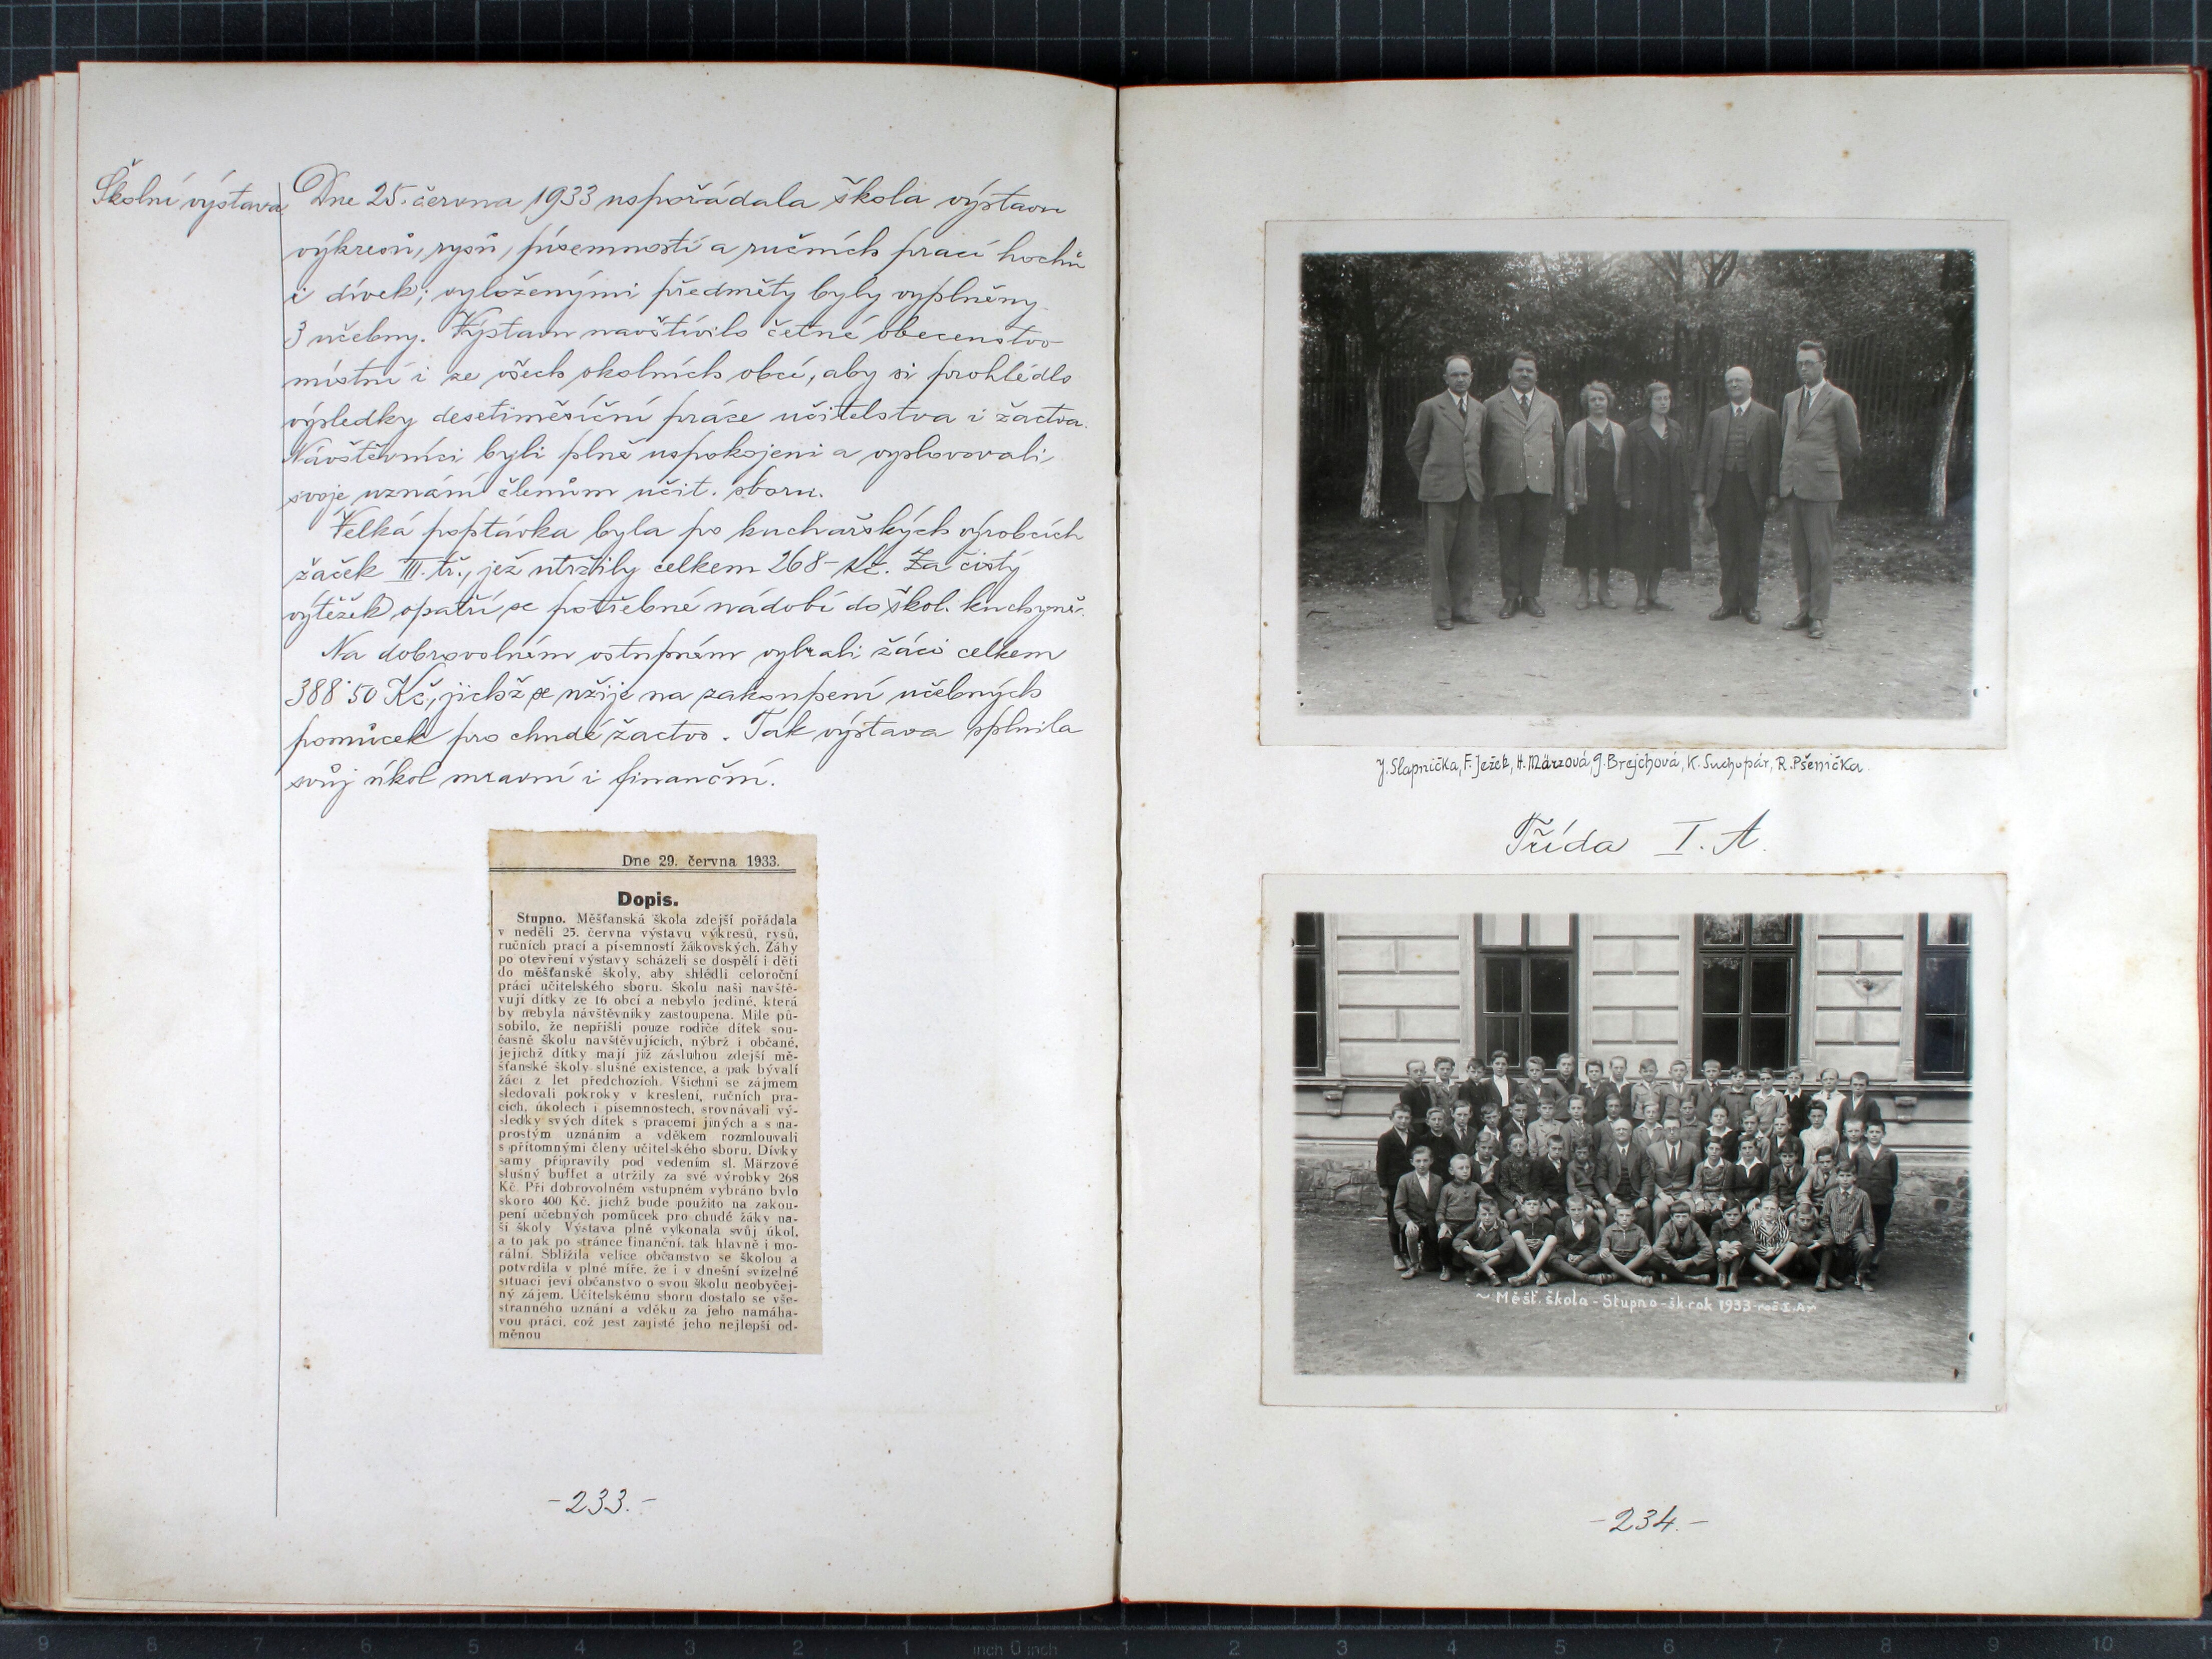 Školní výstava
Dne 25. června 1933 uspořádala škola výstavu
výkresů, rysů, písemností a ručních prací hochů
i dívek; vyloženými předměty byly vyplněny
3 učebny. Výstavu navštívilo četné obecenstvo
místní i ze všech okolních obcí, aby si prohlédlo
výsledky desetiměsíční práce učitelstva i žactva.
Návštěvníci byli plně uspokojeni a vyslovovali
svoje uznání členům učit. sboru.
Velká poptávka byla po kuchařských výrobcích
žaček III. tř., jež utržily celkem 268- Kč. Za čistý
výtěžek opatří se potřebné nádobí do škol. kuchyně.
Na dobrovolném vstupném vybrali žáci celkem
388·50 Kč, jichž se užije na zakoupení učebných
pomůcek pro chudé žactvo. Tak výstava splnila
svůj úkol mravní i finanční.
Dne 29. června 1933.
Dopis.
Stupno. Měšťanská škola zdejší pořádala
v neděli 25. června výstavu výkresů, rysů,
ručních prací a písemností žákovských. Záhy
po otevření výstavy scházeli se dospělí i děti
do měšťanské školy, aby shlédli celoroční
práci učitelského sboru. Školu naši navště-
vují dítky ze 16 obcí a nebylo jediné, která
by nebyla návštěvníky zastoupena. Mile pů-
sobilo, že nepřišli pouze rodiče dítek sou-
časně školu navštěvujících, nýbrž i občané,
jejichž dítky mají již zásluhou zdejší mě-
šťanské školy slušné existence, a pak bývalí
žáci z let předchozích. Všichni se zájmem
sledovali pokroky v kreslení, ručních pra-
cích, úkolech i písemnostech, srovnávali vý-
sledky svých dítek s pracemi jiných a s na-
prostým uznáním a vděkem rozmlouvali
s přítomnými členy učitelského sboru. Dívky
samy připravily pod vedením sl. Märzové
slušný buffet a utržily za své výrobky 268
Kč. Při dobrovolném vstupném vybráno bylo
skoro 400 Kč, jichž bude použito na zakou-
pení učebných pomůcek pro chudé žáky na-
ší školy. Výstava plně vykonala svůj úkol,
a to jak po stránce finanční, tak hlavně i mo-
rální. Sblížila velice občanstvo se školou a
potvrdila v plné míře, že i v dnešní svízelné
situaci jeví občanstvo o svou školu neobyčej-
ný zájem. Učitelskému sboru dostalo se vše-
stranného uznání a vděku za jeho namáha-
vou práci, což jest zajisté jeho nejlepší od-
měnou
-233.-
J. Slapnička, F. Ježek, H. Märzová, J. Brejchová, K. Suchopár, R. Pšenička.
Třída I. A.
~ Měšť. škola - Stupno - šk. rok 1933 - roč I. A
-234.-
9 8 7 6 5 4 3 2 1 inch 0 inch 1 2 3 4 5 6 7 8 9 10